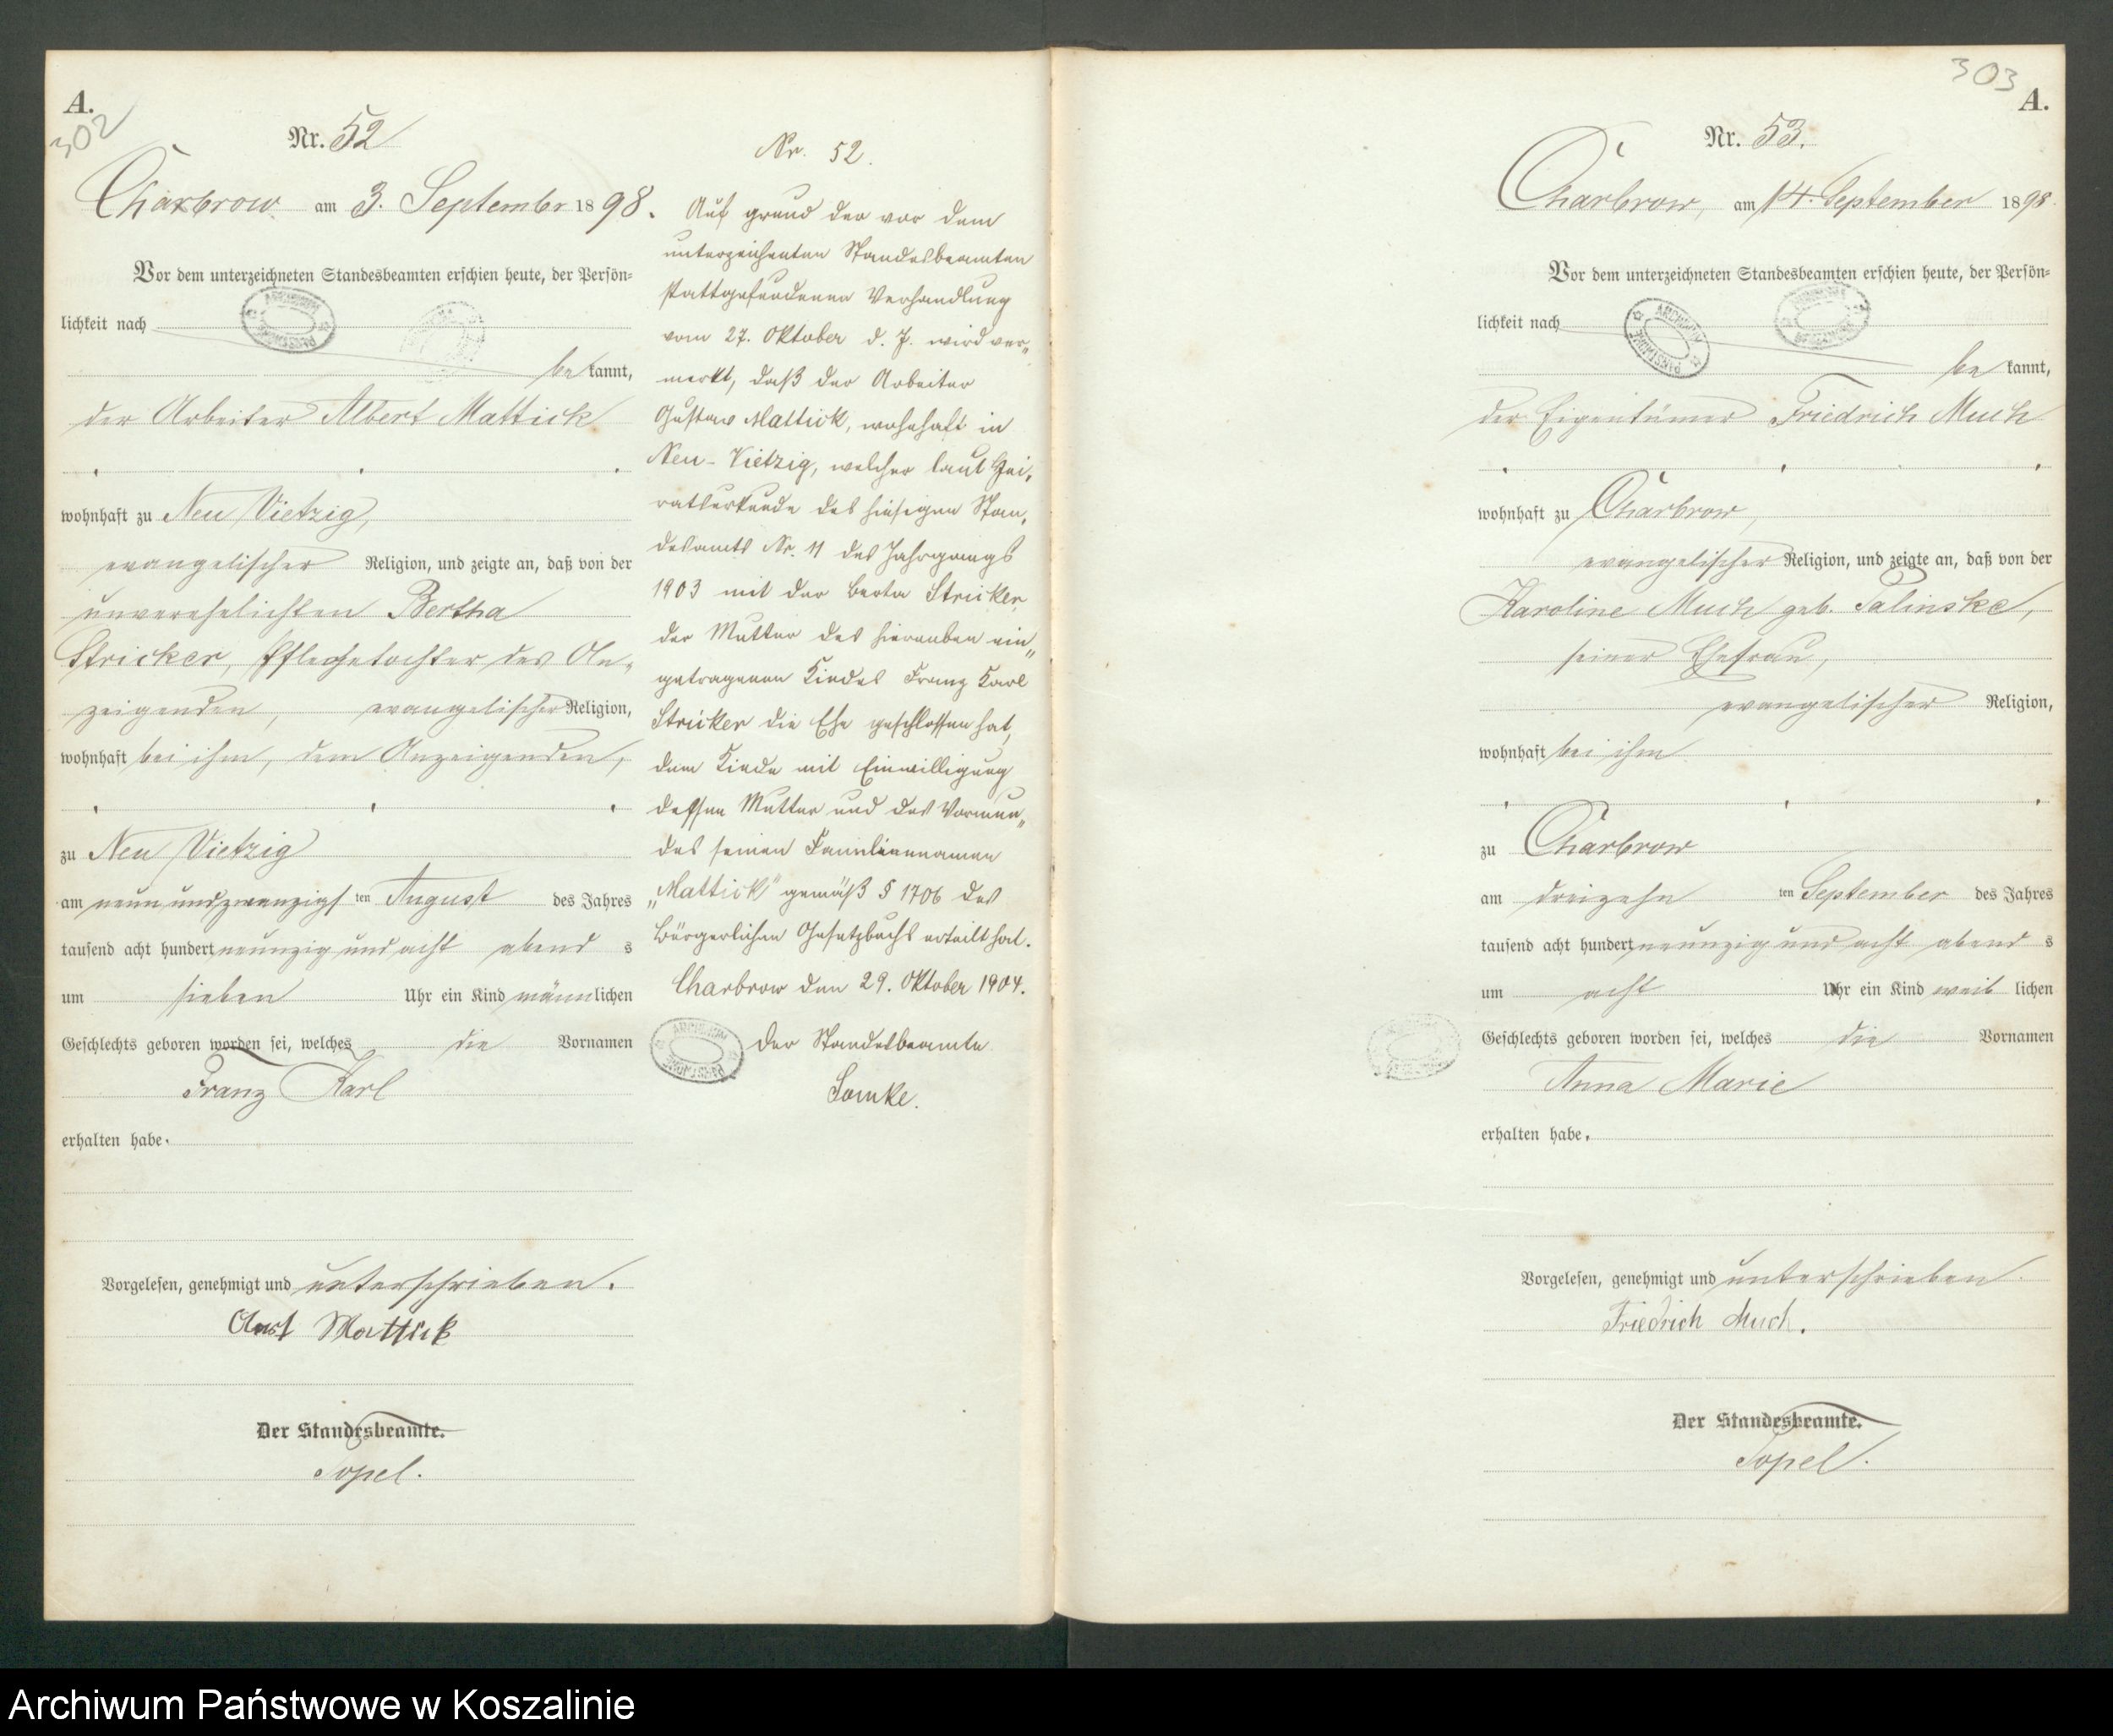 A.
302
Nr. 52
Charbrow am 3. Septembr 1898.
Vor dem unterzeichneten Standesbeamten erschien heute, der Persön=
lichkeit nach
be kannt,
der Arbeiter Albert Mattick
wohnhaft zu Neu Vietzig,
evangelischer Religion, und zeigte an, daß von der
unverehelichten Bertha
Stricker, Pflegetochter des An-
zeigenden, evangelischer Religion,
wohnhaft bei ihm, dem Anzeigenden,
zu Neu Vietzig
am neun und zwanzigs ten August des Jahres
tausend acht hundert neunzig und acht abend s
um sieben Uhr ein Kind männlichen
Geschlechts geboren worden sei, welches die Vornamen
Franz Karl
erhalten habe.
Vorgelesen, genehmigt und unterschrieben.
Mattick
Der Standesbeamte.
Topel.
Nr. 52.
Auf grund der vor dem
unterzeichneten Standesbeamten
stattgefundenen Verhandlung
vom 27. Oktober d. J. wird ver„
merkt, daß der Arbeiter
Gustav Mattick, wohnhaft in
Neu-Vietzig, welcher laut Hei„
ratsurkunde des hiesigen Stan„
desamts Nr. 11 des Jahrgangs
1903 mit der Berta Stricker
der Mutter des hierneben ein„
getragenen Kindes Franz Karl
Stricker die Ehe geschlossen hat,
dem Kinde mit Einwilligung
dessen Mutter und des Vormun„
des seinen Familiennamen
„Mattick" gemäß § 1706 des
Bürgerlichen Gesetzbuchs erteilt hat.
Charbrow den 29. Oktober 1904.
Der Standesbeamte
Lomke.
303
A.
Nr. 53.
Charbrow, am 14. September 1898
Vor dem unterzeichneten Standesbeamten erschien heute, der Persön=
lichkeit nach
be kannt,
der Eigentümer Friedrich Much
wohnhaft zu Charbrow,
evangelischer Religion, und zeigte an, daß von der
Karoline Much geb. Salinske,
seiner Ehefrau,
evangelischer Religion,
wohnhaft bei ihm
zu Charbrow
am dreizehn ten September des Jahres
tausend acht hundert neunzig und acht abend s
um acht Uhr ein Kind weib lichen
Geschlechts geboren worden sei, welches die Vornamen
Anna Marie
erhalten habe.
Vorgelesen, genehmigt und unterschrieben.
Friedrich Much.
Der Standesbeamte.
Topel.
Archiwum Państwowe w Koszalinie